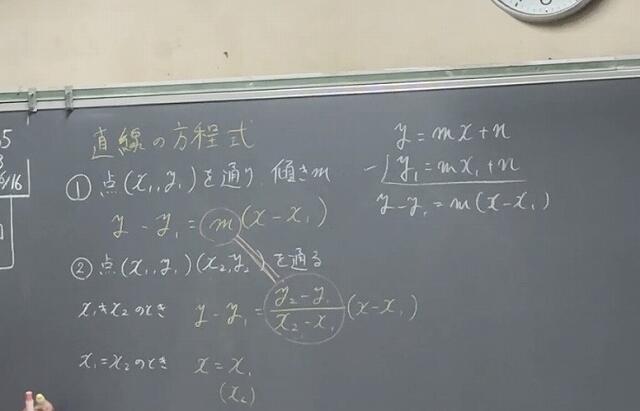 直線の方程式
① 点(x₁, y₁)を通り、傾きm
y - y₁ = m(x - x₁)
② 点(x₁, y₁)(x₂, y₂)を通る
x₁≠x₂のとき y - y₁ = \frac{y₂ - y₁}{x₂ - x₁}(x - x₁)
x₁=x₂のとき x = x₁
(x₂)
y = mx + n
-) y₁ = mx₁ + n
y - y₁ = m(x - x₁)
5
8
/16